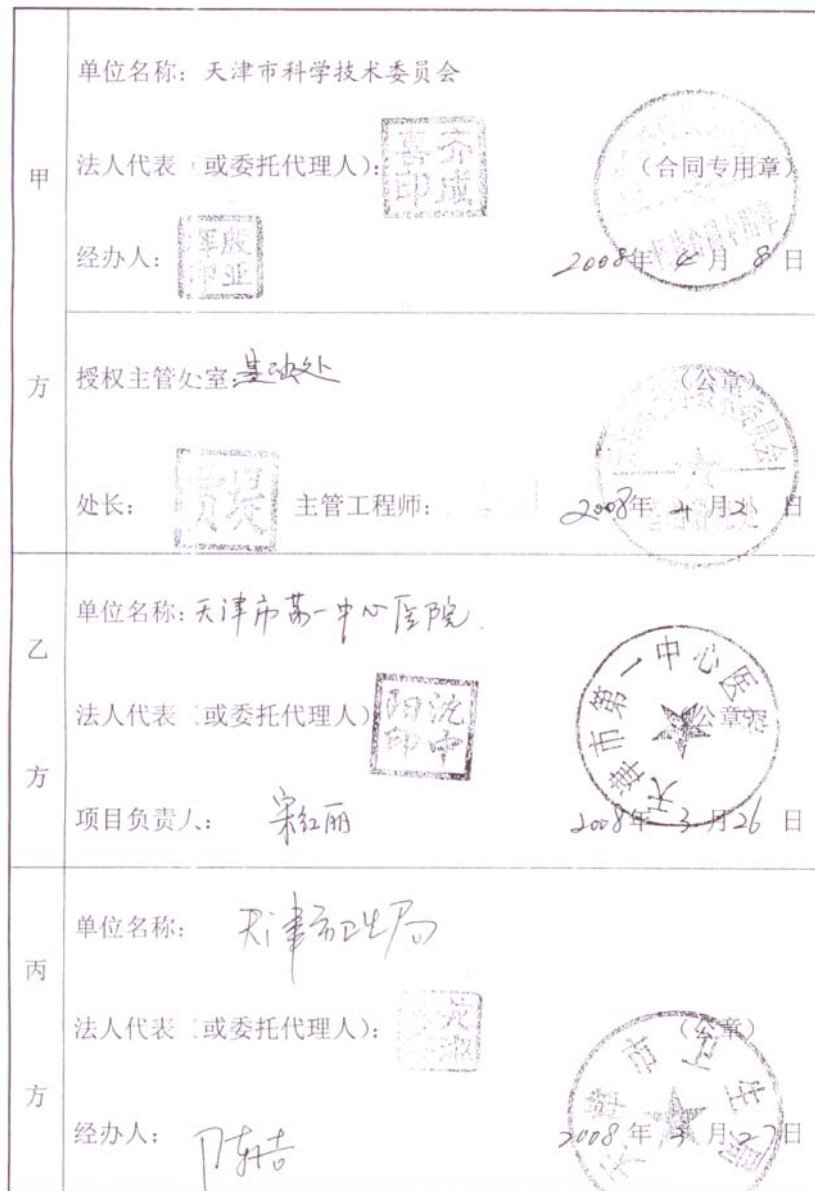 甲方
单位名称：天津市科学技术委员会
法人代表（或委托代理人）：
齐成喜印
（合同专用章）
经办人：
殷亚印
2008年 4 月 8 日
授权主管处室：基础处
（公章）
处长：
主管工程师：
2008年 4 月 2 日
乙方
单位名称：天津市第一中心医院
法人代表（或委托代理人）
沈中阳印
（公章）
天津市第一中心医院
项目负责人：宋红丽
2008年 3 月 26 日
丙方
单位名称：天津市卫生局
法人代表（或委托代理人）：
（公章）
天津市卫生局
经办人：
2008 年 3 月 27 日